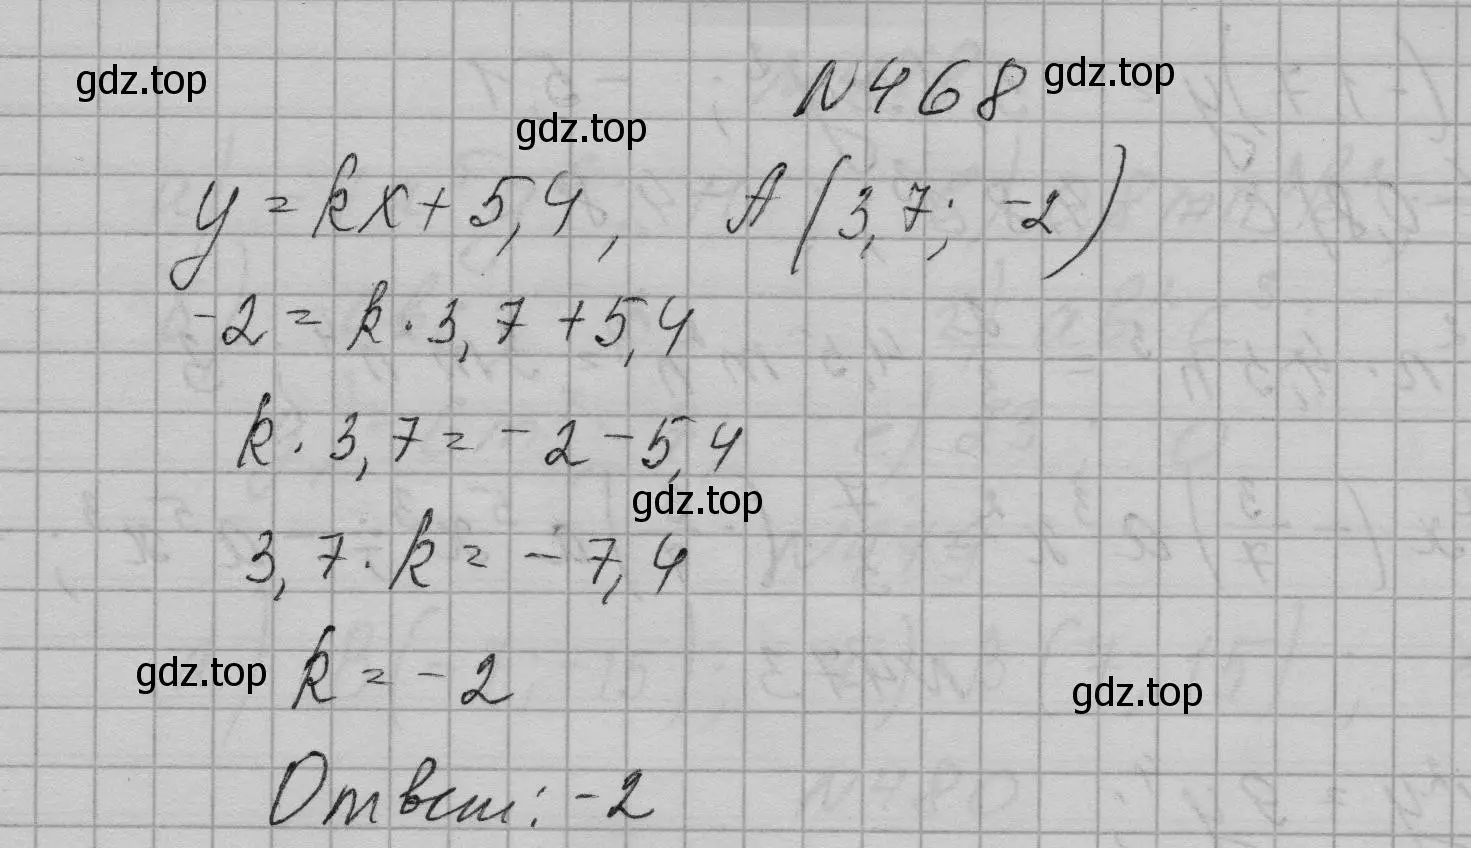 gdz.top
N468
gdz.top
gdz.top
y = kx + 5,4, A (3,7; -2)
-2 = k · 3,7 + 5,4
k · 3,7 = -2 - 5,4
gdz.top
3,7 · k = -7,4
gdz.top
k = -2
gdz.top
Ответ: -2